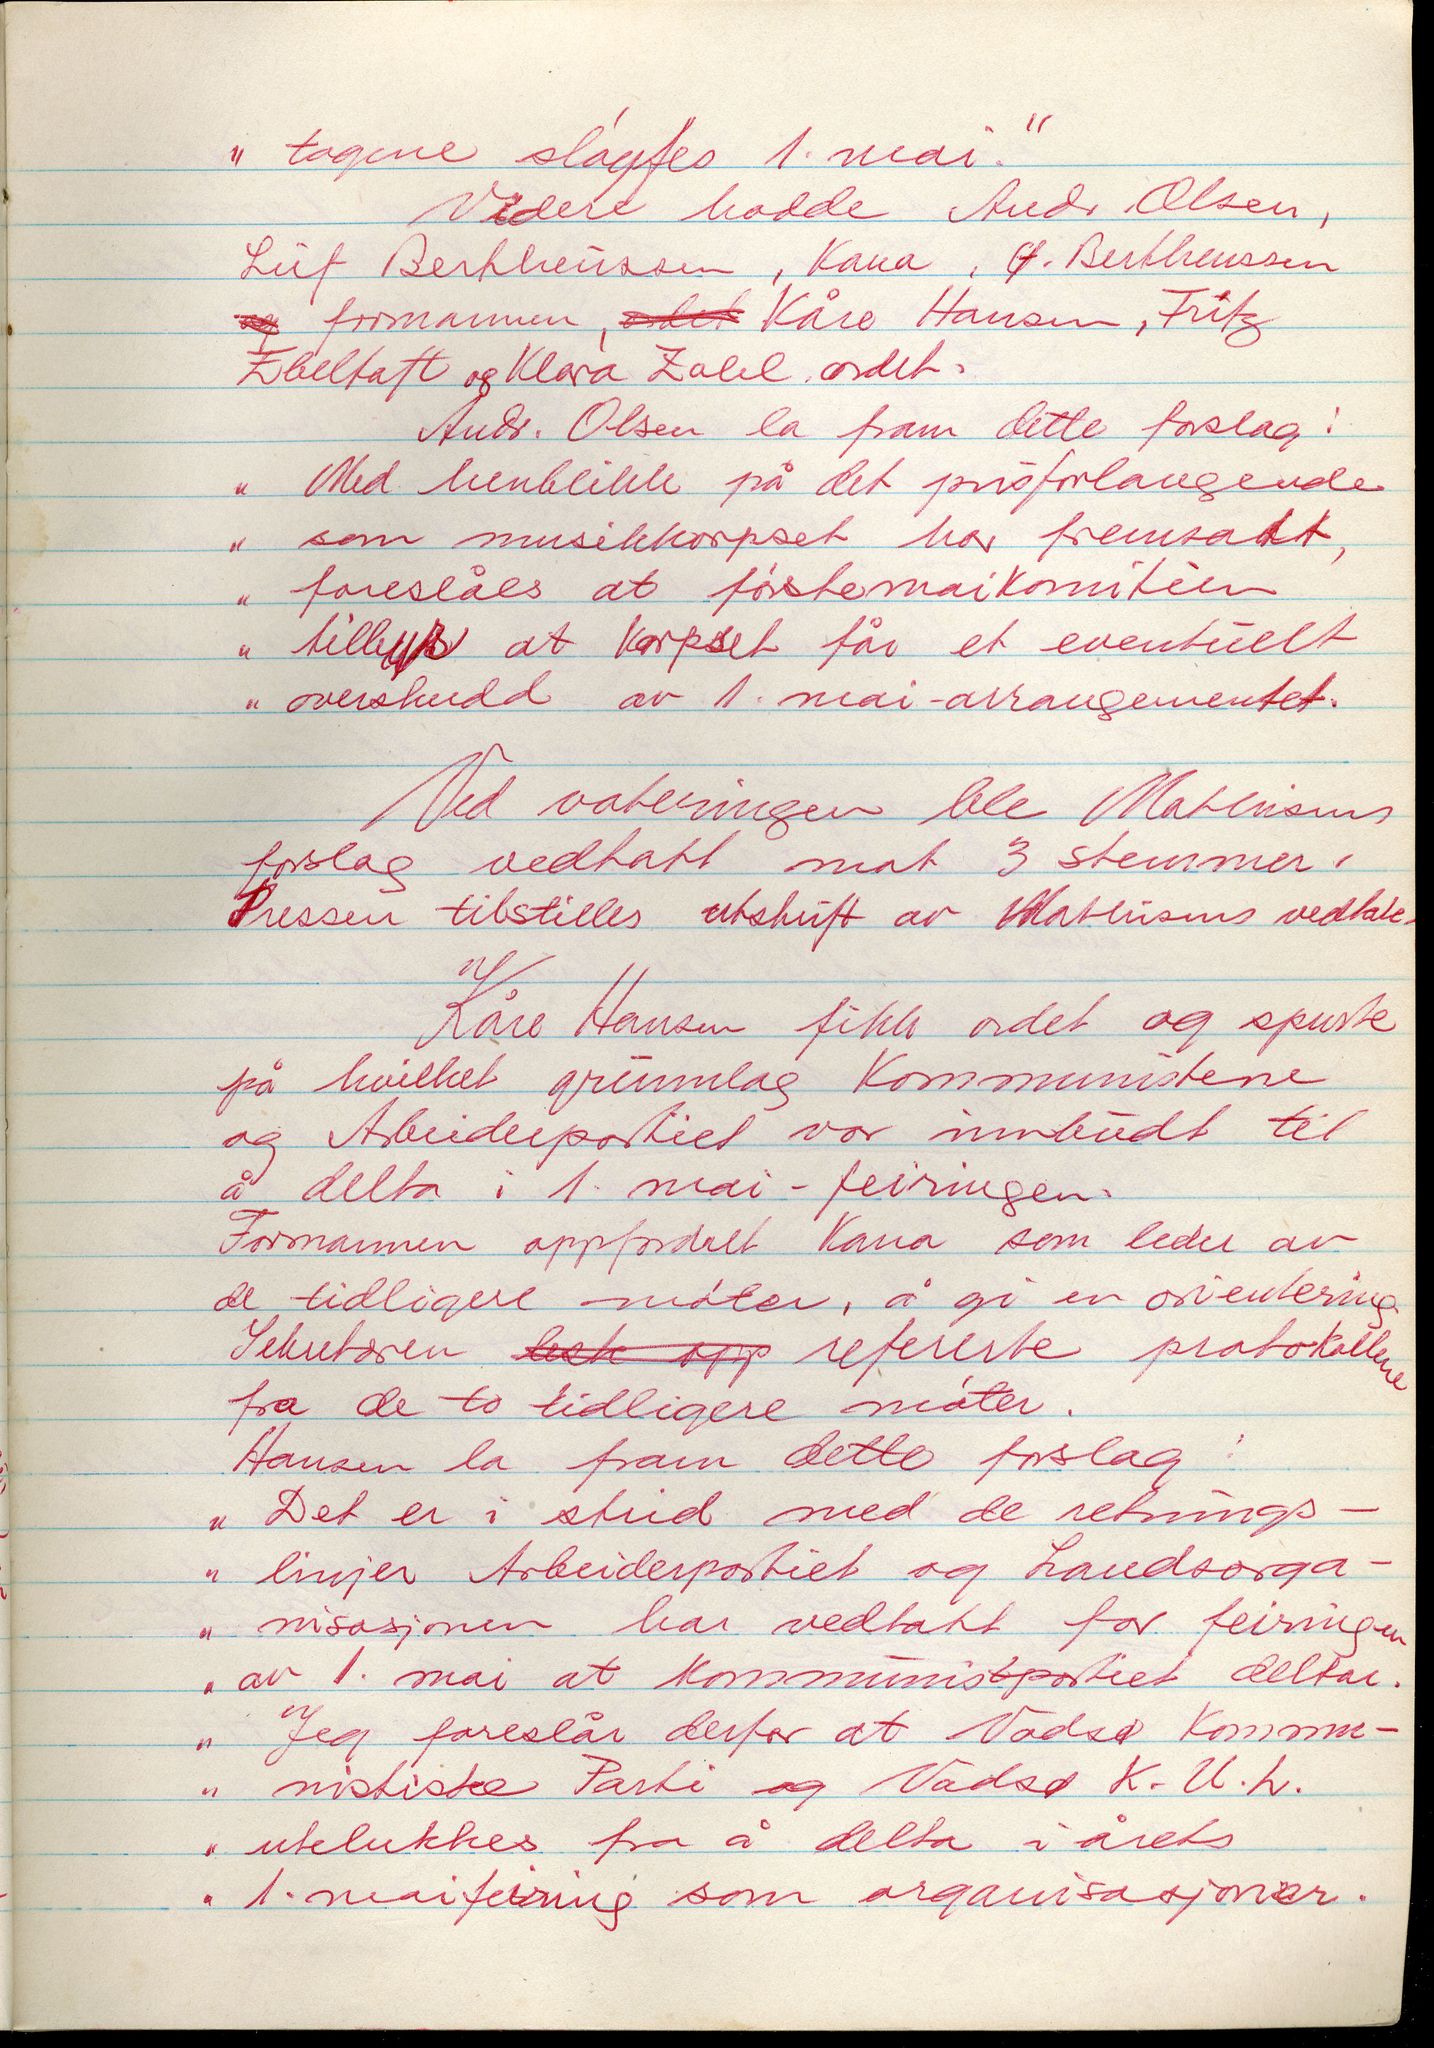 " togene sløyfes 1. mai."
Videre hadde Andr Olsen,
Leif Berthheussen, Kana, J. Berthheussen
og formannen, ordet Kåre Hansen, Fritz
Ebeltoft og Klara Zahl ordet.
Andr. Olsen la fram dette forslag:
" Med henblikk på det prisforlangende
" som musikkorpset har fremsatt,
" foreslåes at førstemaikomitéen
" tilbyr at korpset får et eventuelt
" overskudd av 1. mai-arrangementet.
Ved voteringen ble Mathisens
forslag vedtatt mot 3 stemmer.
Pressen tilstilles utskrift av Mathisens vedtak.
Kåre Hansen fikk ordet og spurte
på hvilket grunnlag Kommunistene
og Arbeiderpartiet var innbudt til
å delta i 1. mai-feiringen.
Formannen oppfordret Kana som leder av
de tidligere møter, å gi en orientering
Sekretæren leste opp refererte protokollene
fra de to tidligere møter.
Hansen la fram dette forslag:
" Det er i strid med de retnings-
" linjer Arbeiderpartiet og Landsorga-
" nisasjonen har vedtatt for feiringen
" av 1. mai at Kommunistpartiet deltar.
" Jeg foreslår derfor at Vadsø Kommu-
" nistiske Parti og Vadsø K.U.L.
" utelukkes fra å delta i årets
" 1. maifeiring som organisasjoner.